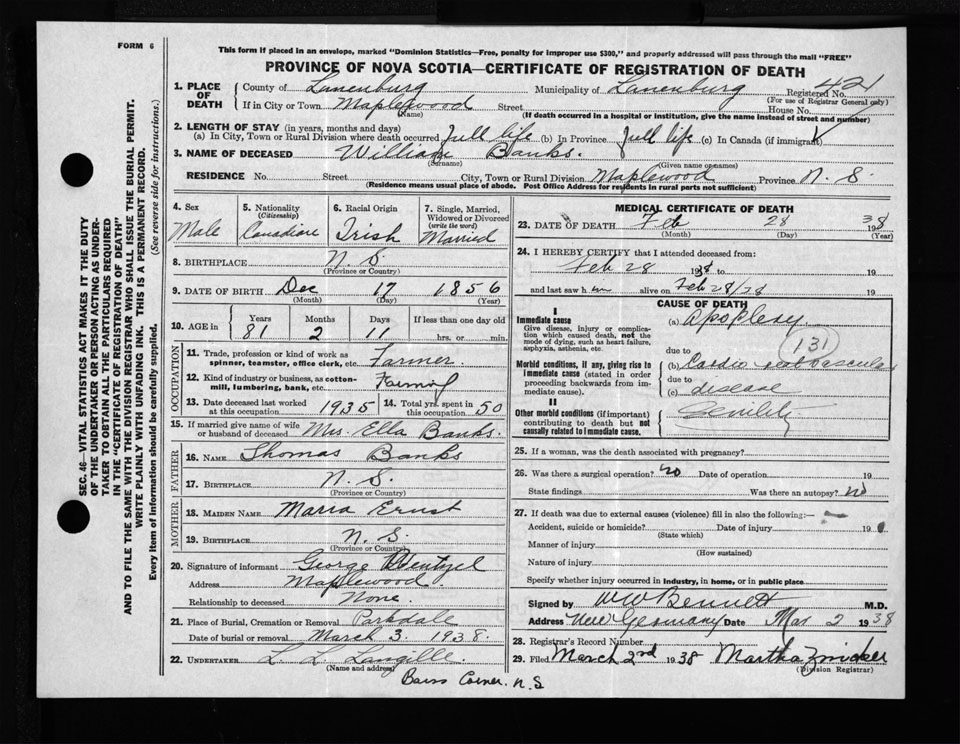 FORM 6
This form if placed in an envelope, marked "Dominion Statistics—Free, penalty for improper use $300," and properly addressed will pass through the mail "FREE"
PROVINCE OF NOVA SCOTIA—CERTIFICATE OF REGISTRATION OF DEATH
1. PLACE OF DEATH County of Lunenburg Municipality of Lunenburg Registered No. 421
(For use of Registrar General only)
If in City or Town Maplewood Street House No.
(Name) (If death occurred in a hospital or institution, give the name instead of street and number)
2. LENGTH OF STAY (in years, months and days)
(a) In City, Town or Rural Division where death occurred full life (b) In Province full life (c) In Canada (if immigrant) ✓
3. NAME OF DECEASED William Banks.
(Surname) (Given name or names)
RESIDENCE No. Street City, Town or Rural Division Maplewood Province N. S.
(Residence means usual place of abode. Post Office Address for residents in rural parts not sufficient)
4. Sex Male
5. Nationality (Citizenship) Canadian
6. Racial Origin Irish
7. Single, Married, Widowed or Divorced (write the word) Married
8. BIRTHPLACE N. S.
(Province or Country)
9. DATE OF BIRTH Dec 17 1856
(Month) (Day) (Year)
10. AGE in Years Months Days If less than one day old
81 2 11 hrs. or min.
OCCUPATION
11. Trade, profession or kind of work as spinner, teamster, office clerk, etc. Farmer
12. Kind of industry or business, as cotton-mill, lumbering, bank, etc. Farming
13. Date deceased last worked at this occupation 1935
14. Total yrs. spent in this occupation 50
15. If married give name of wife or husband of deceased Mrs. Ella Banks.
FATHER
16. NAME Thomas Banks
17. BIRTHPLACE N. S.
(Province or Country)
MOTHER
18. MAIDEN NAME Maria Ernst
19. BIRTHPLACE N. S.
(Province or Country)
20. Signature of informant George Wentzel
Address Maplewood.
Relationship to deceased None.
21. Place of Burial, Cremation or Removal Parkdale
Date of burial or removal March 3. 1938.
22. UNDERTAKER L. L. Langille.
(Name and address)
Barss Corner. N. S
MEDICAL CERTIFICATE OF DEATH
23. DATE OF DEATH Feb 28 1938
(Month) (Day) (Year)
24. I HEREBY CERTIFY that I attended deceased from:
Feb 28 1938 to 19
and last saw him alive on Feb 28/38 19
CAUSE OF DEATH
I
Immediate cause
Give disease, injury or complication which caused death, not the mode of dying, such as heart failure, asphyxia, asthenia, etc.
(a) Apoplexy
131
due to
Morbid conditions, if any, giving rise to immediate cause (stated in order proceeding backwards from immediate cause).
(b) Cardio vascular
due to
(c) disease
II
Other morbid conditions (if important) contributing to death but not causally related to immediate cause.
Senility
25. If a woman, was the death associated with pregnancy?
26. Was there a surgical operation? no Date of operation 19
State findings Was there an autopsy? no
27. If death was due to external causes (violence) fill in also the following:—
Accident, suicide or homicide? Date of injury 19
(State which)
Manner of injury
(How sustained)
Nature of injury
Specify whether injury occurred in industry, in home, or in public place
Signed by W W Bennett M.D.
Address New Germany Date Mar 2 1938
28. Registrar's Record Number
29. Filed March 2nd 1938 Martha Zwicker
(Division Registrar)
SEC. 46—VITAL STATISTICS ACT MAKES IT THE DUTY
OF THE UNDERTAKER OR PERSON ACTING AS UNDER-
TAKER TO OBTAIN ALL THE PARTICULARS REQUIRED
IN THE "CERTIFICATE OF REGISTRATION OF DEATH"
AND TO FILE THE SAME WITH THE DIVISION REGISTRAR WHO SHALL ISSUE THE BURIAL PERMIT.
WRITE PLAINLY WITH UNFADING INK. THIS IS A PERMANENT RECORD.
Every item of information should be carefully supplied. (See reverse side for instructions.)